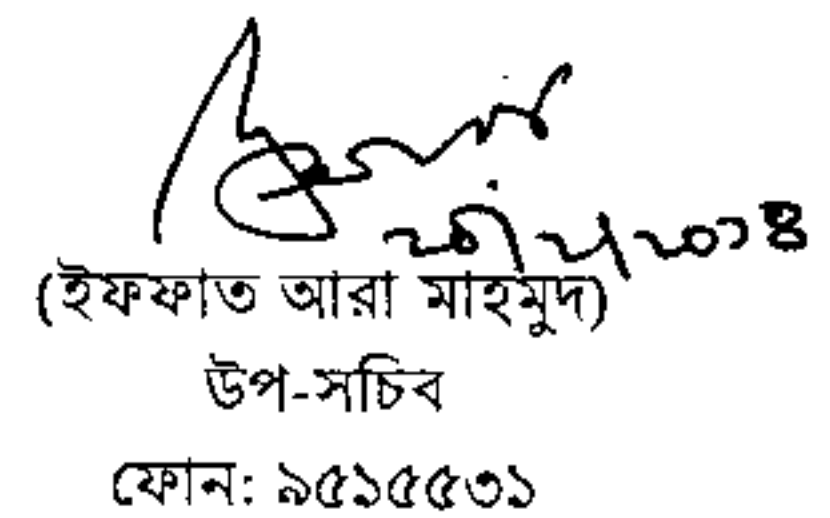 (ইফফাত আরা মাহমুদ)
উপ-সচিব
ফোন: ৯৫১৫৫৩১